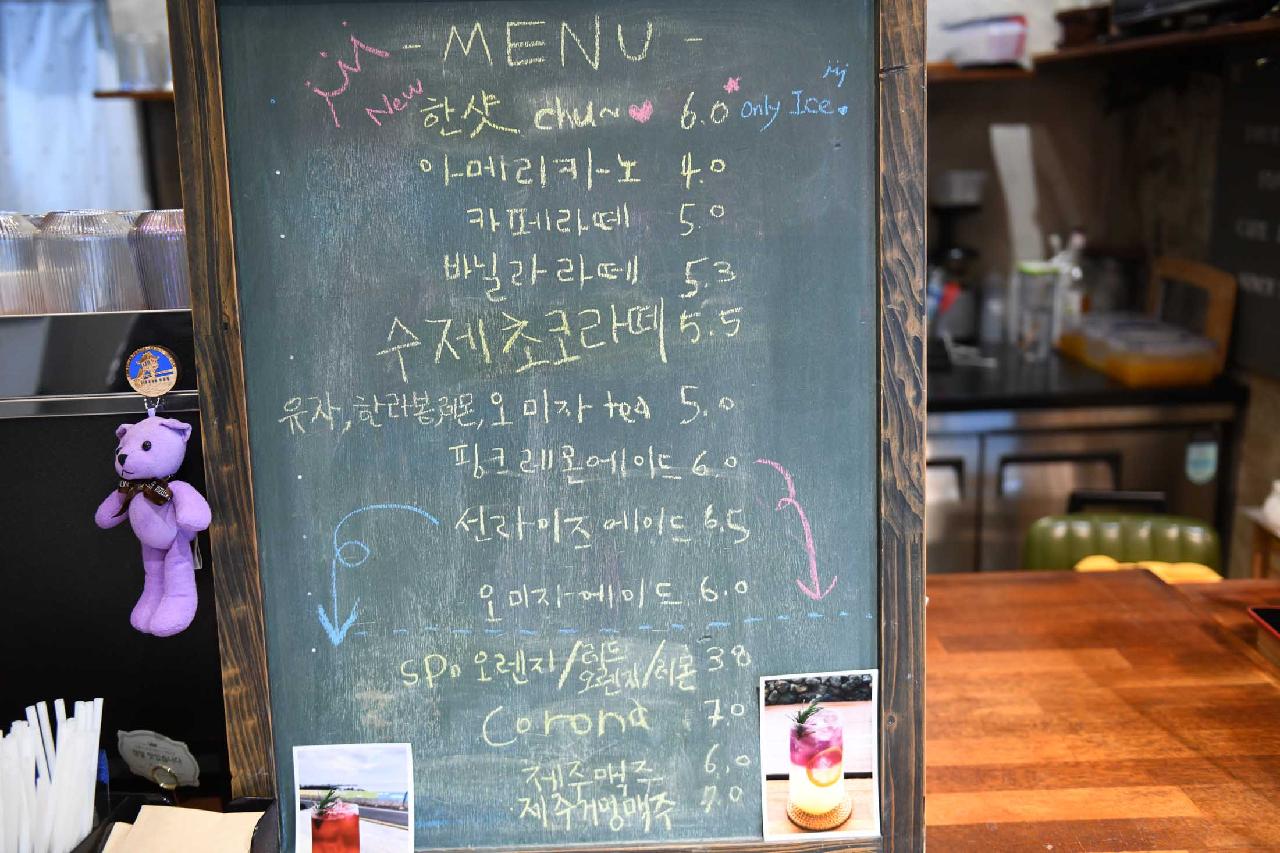 - MENU -
New 한샷 chu~♥ 6.0 * only Ice.
아메리카노 4.0
카페라떼 5.0
바닐라라떼 5.3
수제초코라떼 5.5
유자, 한라봉, 레몬, 오미자 tea 5.0
핑크레몬에이드 6.0
선라이즈에이드 6.5
오미자에이드 6.0
오렌지/레드오렌지/레몬 3.8
Corona 7.0
제주맥주 6.0
제주거멍맥주 7.0